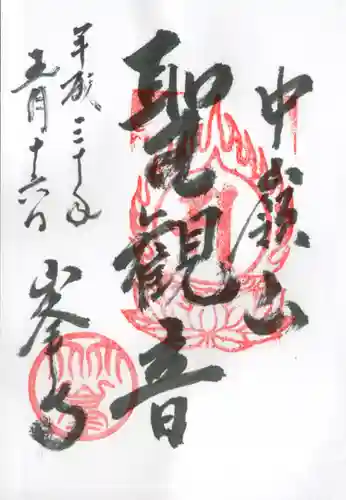 中嶽山
聖観音
峯寺
平成三十年
五月十六日